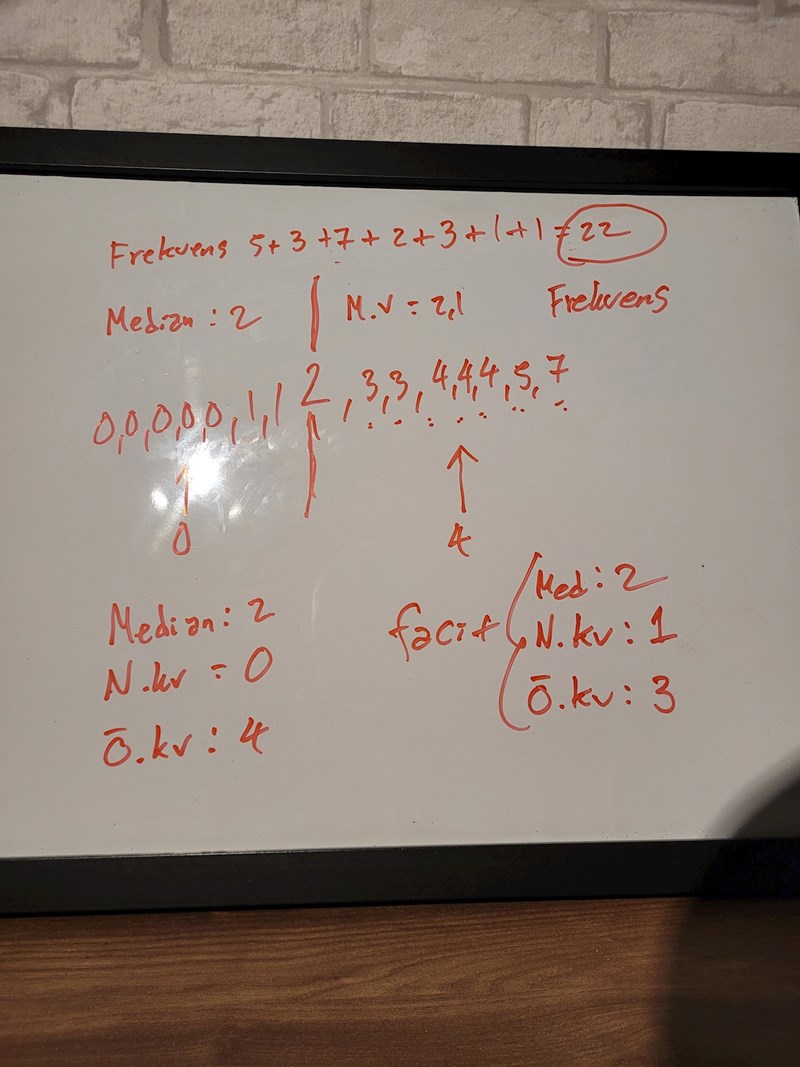 Frekvens 5+3+7+2+3+1+1=22
Median: 2 | M.V = 2,1 Frekvens
0,0,0,0,0,1,1 2, 3,3, 4,4,4, 5, 7
0 4
Median: 2
N.kv = 0
Ō.kv: 4
facit
Med: 2
N.kv: 1
Ō.kv: 3